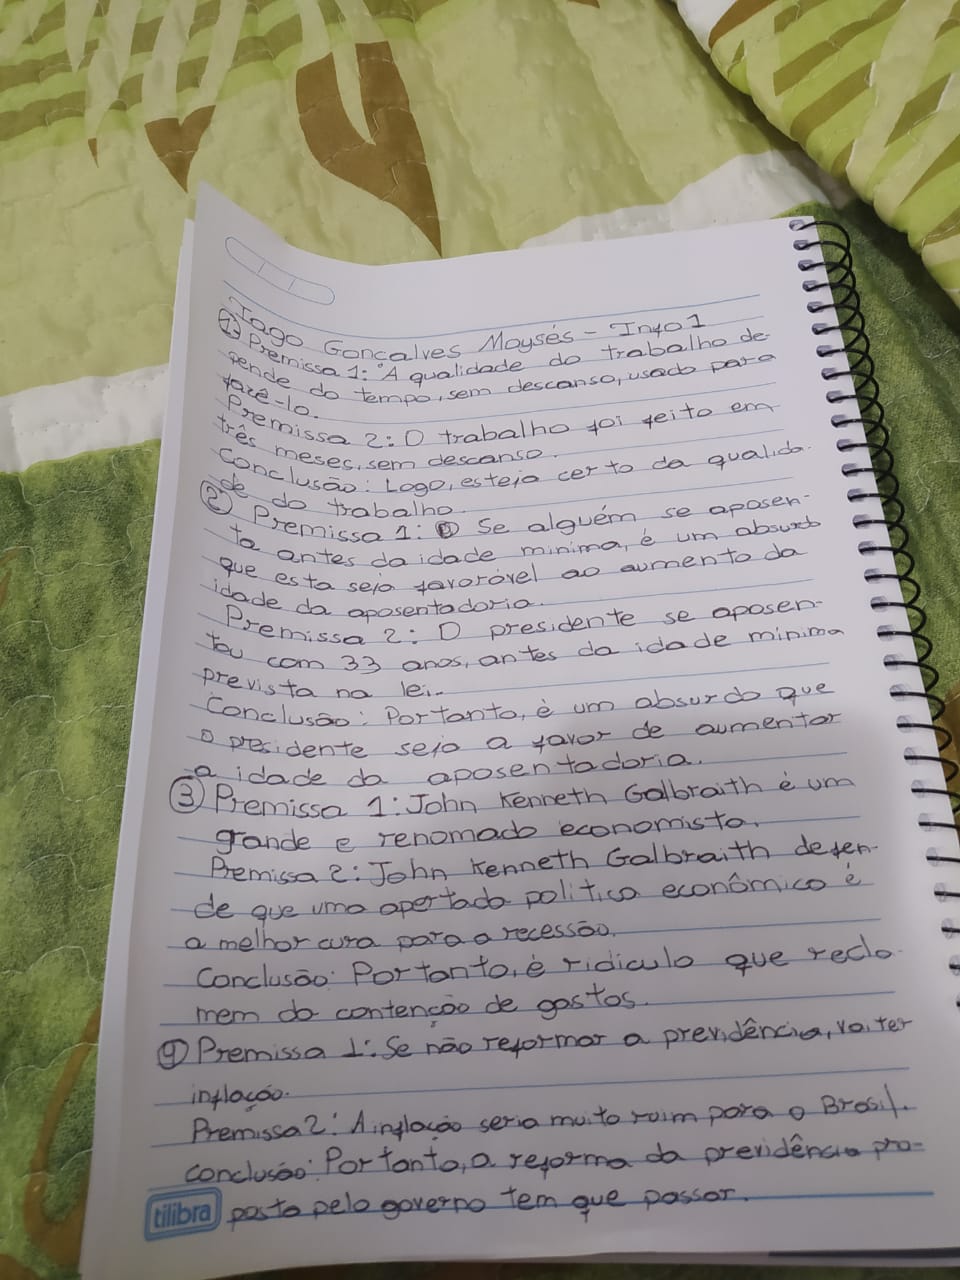 Iago Gonçalves Moysés - Info 1
① Premissa 1: "A qualidade do trabalho de-
pende do tempo, sem descanso, usado para
fazê-lo.
Premissa 2: O trabalho foi feito em
três meses, sem descanso.
Conclusão: Logo, esteja certo da qualida-
de do trabalho.
② Premissa 1: Se alguém se aposen-
ta antes da idade minima, é um absurdo
que esta seja favorável ao aumento da
idade da aposentadoria.
Premissa 2: O presidente se aposen-
tou com 33 anos, antes da idade mínima
prevista na lei.
Conclusão: Portanto, é um absurdo que
o presidente seja a favor de aumentar
a idade da aposentadoria.
③ Premissa 1: John Kenneth Galbraith é um
grande e renomado economista.
Premissa 2: John Kenneth Galbraith defen-
de que uma apertada política econômica é
a melhor cura para a recessão.
Conclusão: Portanto, é ridiculo que recla-
mem da contenção de gastos.
④ Premissa 1: Se não reformar a previdência, vai ter
inflação.
Premissa 2: A inflação seria muito ruim para o Brasil.
conclusão: Portanto, a reforma da previdência pro-
posta pelo governo tem que passar.
tilibra